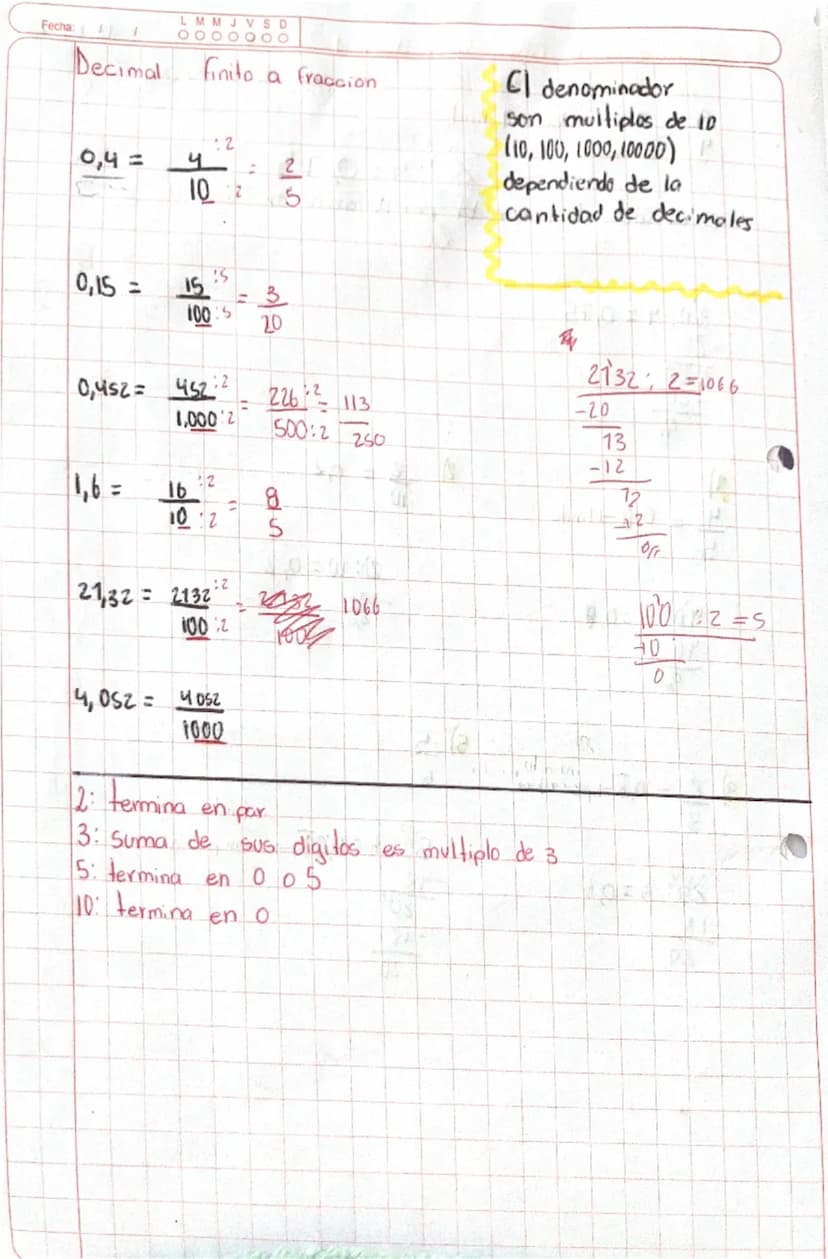 Fecha: / /
L M M J V S D
Decimal finito a fraccion
El denominador
son multiplos de 10
(10, 100, 1000, 10000)
dependiendo de la
cantidad de decimales
0,4 = 4 :2 / 10 :2 = 2 / 5
0,15 = 15 :5 / 100 :5 = 3 / 20
0,452 = 452 :2 / 1,000 :2 = 226 :2 / 500 :2 = 113 / 250
1,6 = 16 :2 / 10 :2 = 8 / 5
21,32 = 2132 :2 / 100 :2 = 1066
4,052 = 4052 / 1000
2132 : 2 = 1066
-20
13
-12
12
12
0//
100 : 2 = 5
-10
0
2: termina en par
3: suma de sus digitos es multiplo de 3
5: termina en 0 o 5
10: termina en 0